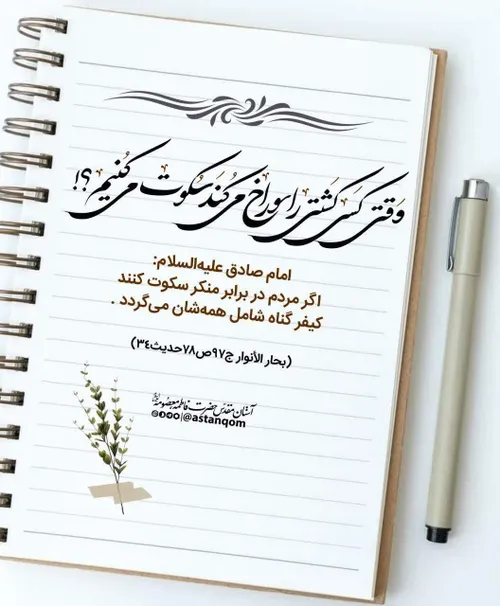 وقتی کسی کشتی را سوراخ می‌کند سکوت می‌کنیم؟!
امام صادق علیه‌السلام:
اگر مردم در برابر منکر سکوت کنند
کیفر گناه شامل همه‌شان می‌گردد .
(بحار الأنوار ج۹۷ص۷۸حدیث۳٤)
آستان مقدس حضرت فاطمه معصومه
@astanqom